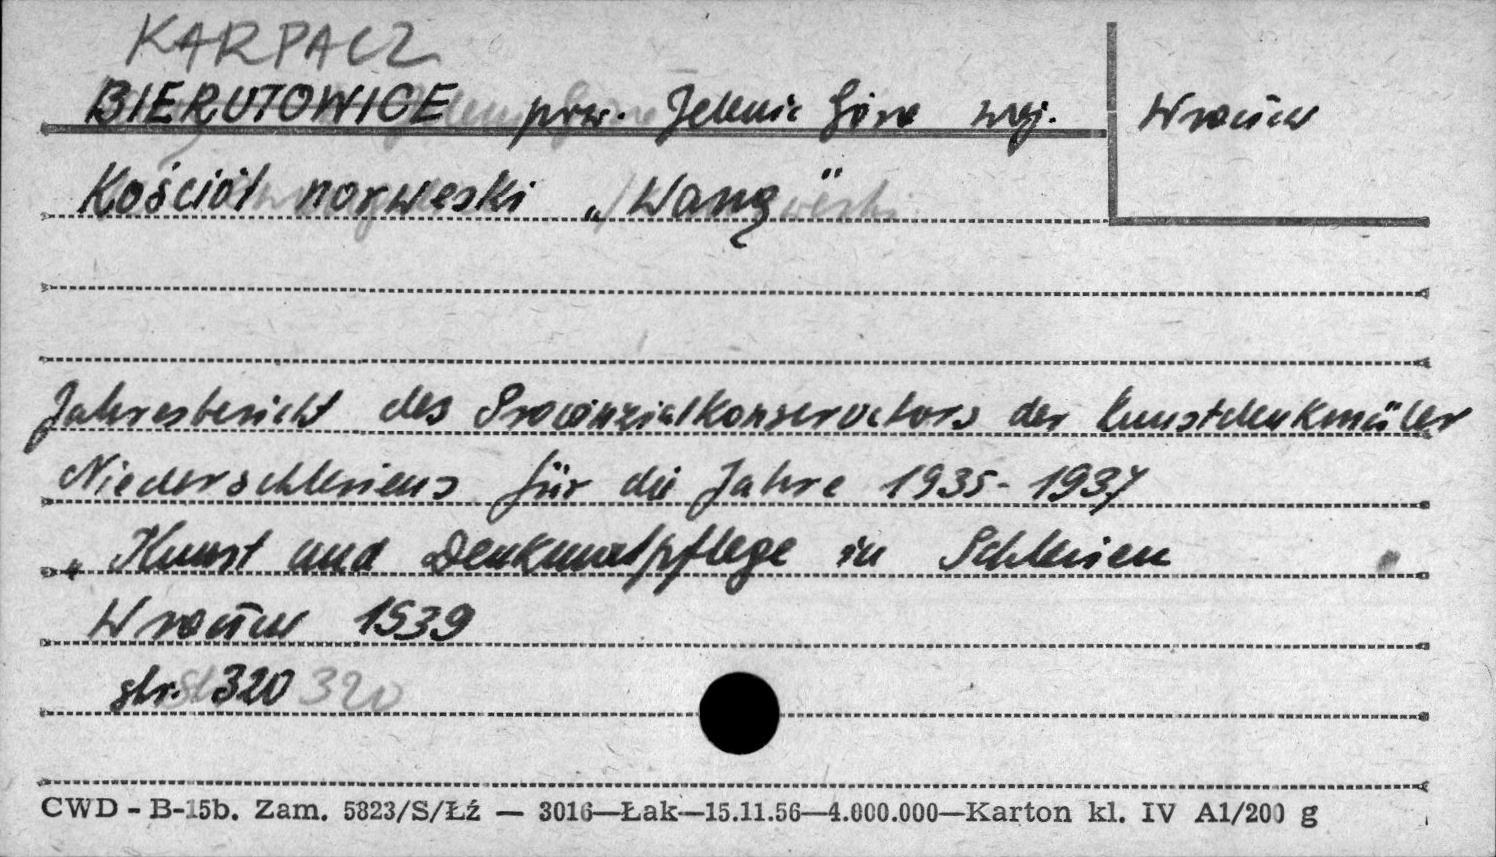 KARPACZ
BIERUTOWICE pow. Jelenia Góra woj. Wrocław
Kościół norweski „Wang"
Jahresbericht des Provinzialkonservators der Kunstdenkmäler
Niederschlesiens für die Jahre 1935-1937
„Kunst und Denkmalpflege in Schlesien
Wrocław 1939
str. 320 320
CWD - B-15b. Zam. 5823/S/Łź — 3016—Łak—15.11.56—4.000.000—Karton kl. IV A1/200 g